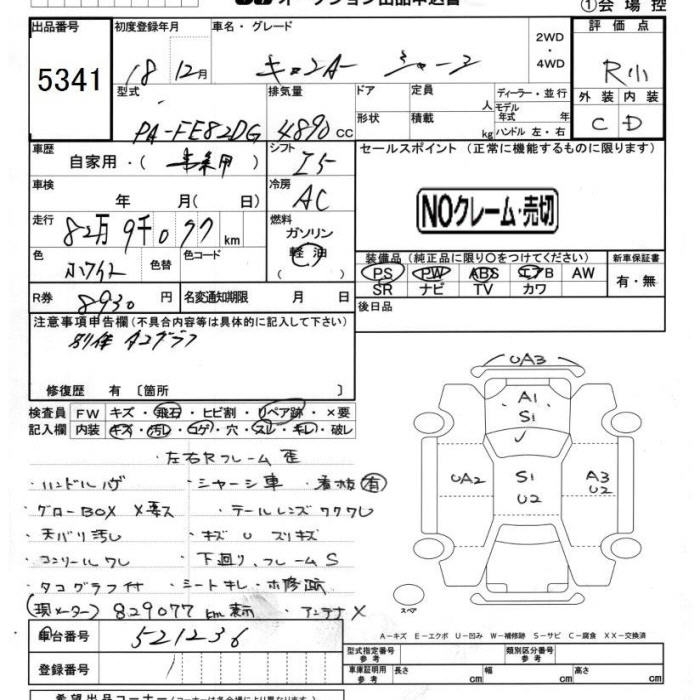 ①会 場 控
出品番号
5341
初度登録年月
18 12月
車名・グレード
キャンター
2WD
・
4WD
評 価 点
R
外 装
内 装
C
D
型式
PA-FE82DG
排気量
4890 CC
ドア
形状
定員
人
積載
kg
ディーラー・並行
モデル
年式 年
ハンドル 左・右
車歴
自家用・(事業用)
シフト
I5
車検
年 月( 日)
冷房
AC
走行
82万9千077 km
燃料
ガソリン
軽 油
( )
色
ホワイト
色替
色コード
R券
8930 円
名変通知期限
月 日
セールスポイント (正常に機能するものに限ります)
NOクレーム・売切
装備品 (純正品に限り〇をつけてください)
PS PW ABS エアB AW
SR ナビ TV カワ
新車保証書
有・無
後日品
注意事項申告欄 (不具合内容等は具体的に記入して下さい)
修復歴 有 〔箇所 〕
検査員
記入欄
FW キズ・飛石・ヒビ割・リペア跡・×要
内装 キズ・汚レ・コゲ・穴・スレ・キレ・破レ
左右Rフレーム 歪
・ハンドルハゲ ・シャーシ車 ・看板 有
・グローBOX ×要ス ・テールレンズワクワレ
・天バリ汚レ ・キズ U スリキズ
・コンソールワレ ・下廻り、フレームS
・タコグラフ付 ・シートキレ・ホ修跡
(現メーター) 829077 km表示 ・アンテナ×
UA3
A1
S1
UA2
S1
U2
A3
U2
スペア
A-キズ E-エクボ U-凹み W-補修跡 S-サビ C-腐食 XX-交換済
車台番号
521236
登録番号
型式指定番号
参 考
類別区分番号
参 考
車庫証明用
参 考
長さ cm
幅 cm
高さ cm
希望出品コーナー